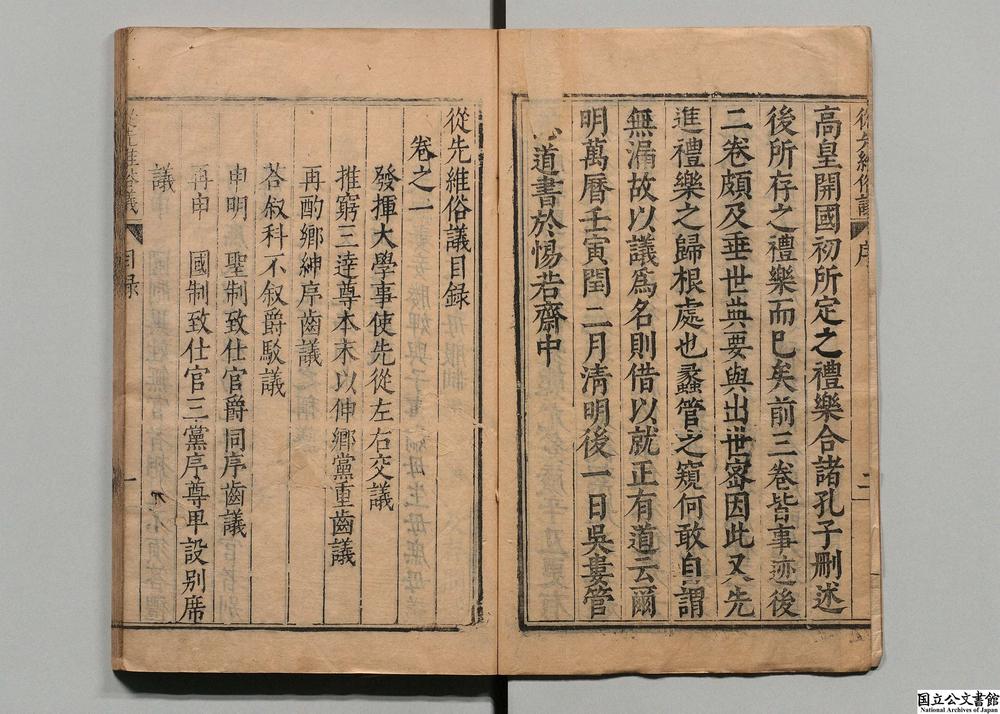 高皇開國初所定之禮樂合諸孔子刪述
後所存之禮樂而已矣前三卷皆事迹後
二卷頗及垂世典要與出世密因此又先
進禮樂之歸根處也蠡管之窺何敢自謂
無漏故以議爲名則借以就正有道云爾
明萬曆壬寅閏二月清明後一日吳婁管
道書於惕若齋中
序
二
從先維俗議目録
卷之一
發揮大學事使先從左右交議
推窮三達尊本末以伸鄉黨重齒議
再酌鄉紳序齒議
荅叙科不叙爵駁議
申明 聖制致仕官爵同序齒議
再申 國制致仕官三黨序尊卑設别席
議
從先維俗議
目録
一
国立公文書館
National Archives of Japan